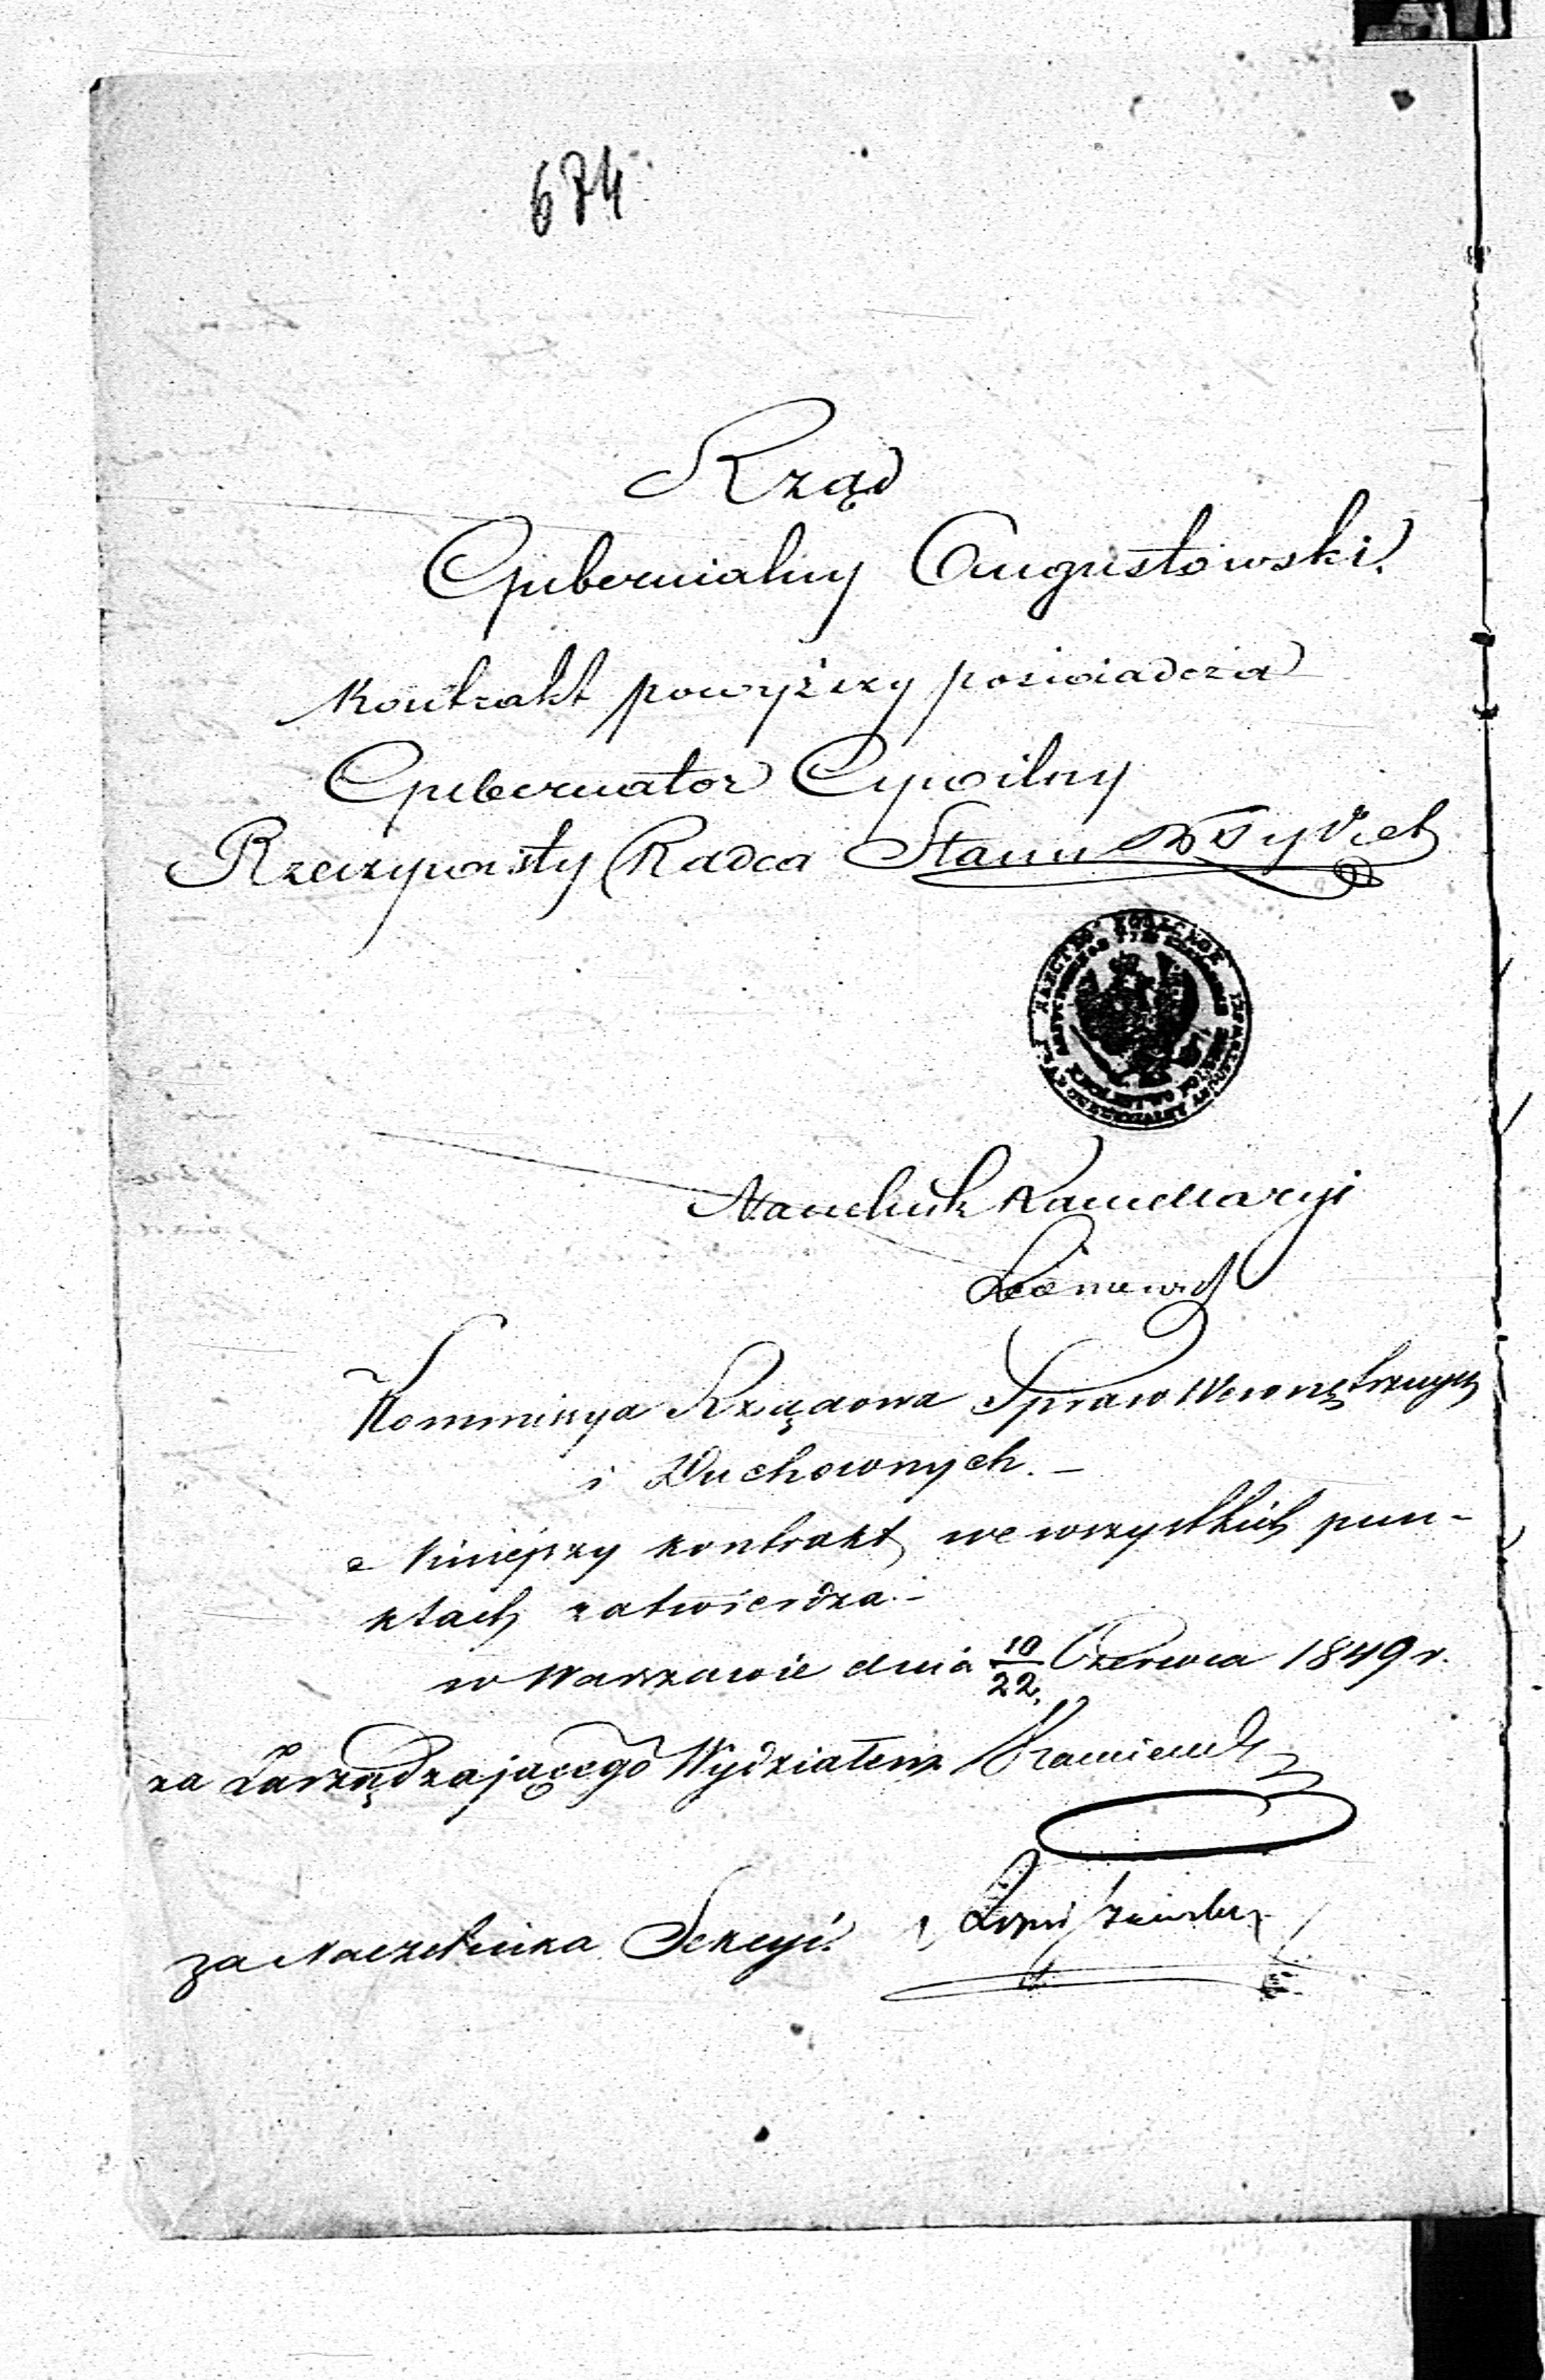 674
Rząd
Gubernialny Augustowski.
Kontrakt powyższy poświadcza
Gubernator Cywilny
Rzeczywisty Radca Stanu
Naczelnik Kancellaryi
Kommissya Rządowa Spraw Wewnętrznych
i Duchownych. —
Niniejszy kontrakt we wszystkich pun-
ktach zatwierdza. —
w Warszawie dnia 10/22 Czerwca 1849 r.
za Zarządzającego Wydziałem
za Naczelnika Sekcyi